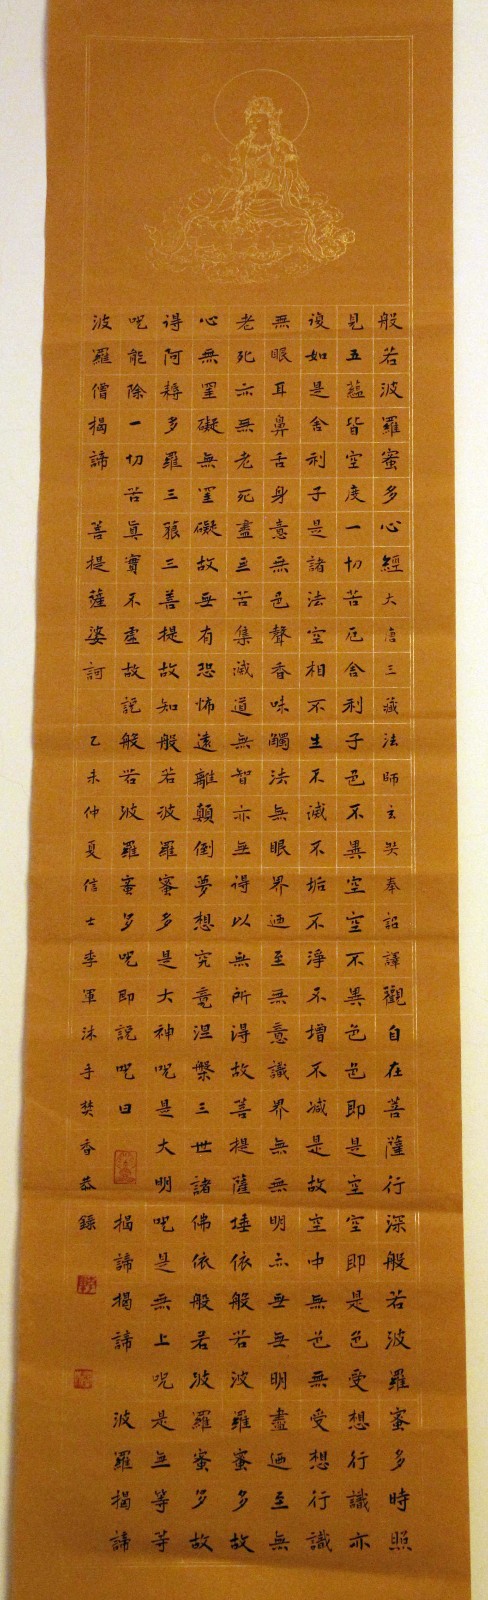 般若波羅蜜多心經大唐三藏法師玄奘奉詔譯觀自在菩薩行深般若波羅蜜多時照
見五蘊皆空度一切苦厄舍利子色不異空空不異色色即是空空即是色受想行識亦
復如是舍利子是諸法空相不生不滅不垢不淨不增不減是故空中無色無受想行識
無眼耳鼻舌身意無色聲香味觸法無眼界迺至無意識界無無明亦無無明盡迺至無
老死亦無老死盡無苦集滅道無智亦無得以無所得故菩提薩埵依般若波羅蜜多故
心無罣礙無罣礙故無有恐怖遠離顛倒夢想究竟涅槃三世諸佛依般若波羅蜜多故
得阿耨多羅三藐三菩提故知般若波羅蜜多是大神呪是大明呪是無上呪是無等等
呪能除一切苦眞實不虛故說般若波羅蜜多呪即說呪曰 揭諦揭諦 波羅揭諦
波羅僧揭諦 菩提薩婆訶 乙未仲夏信士李軍沐手焚香恭錄